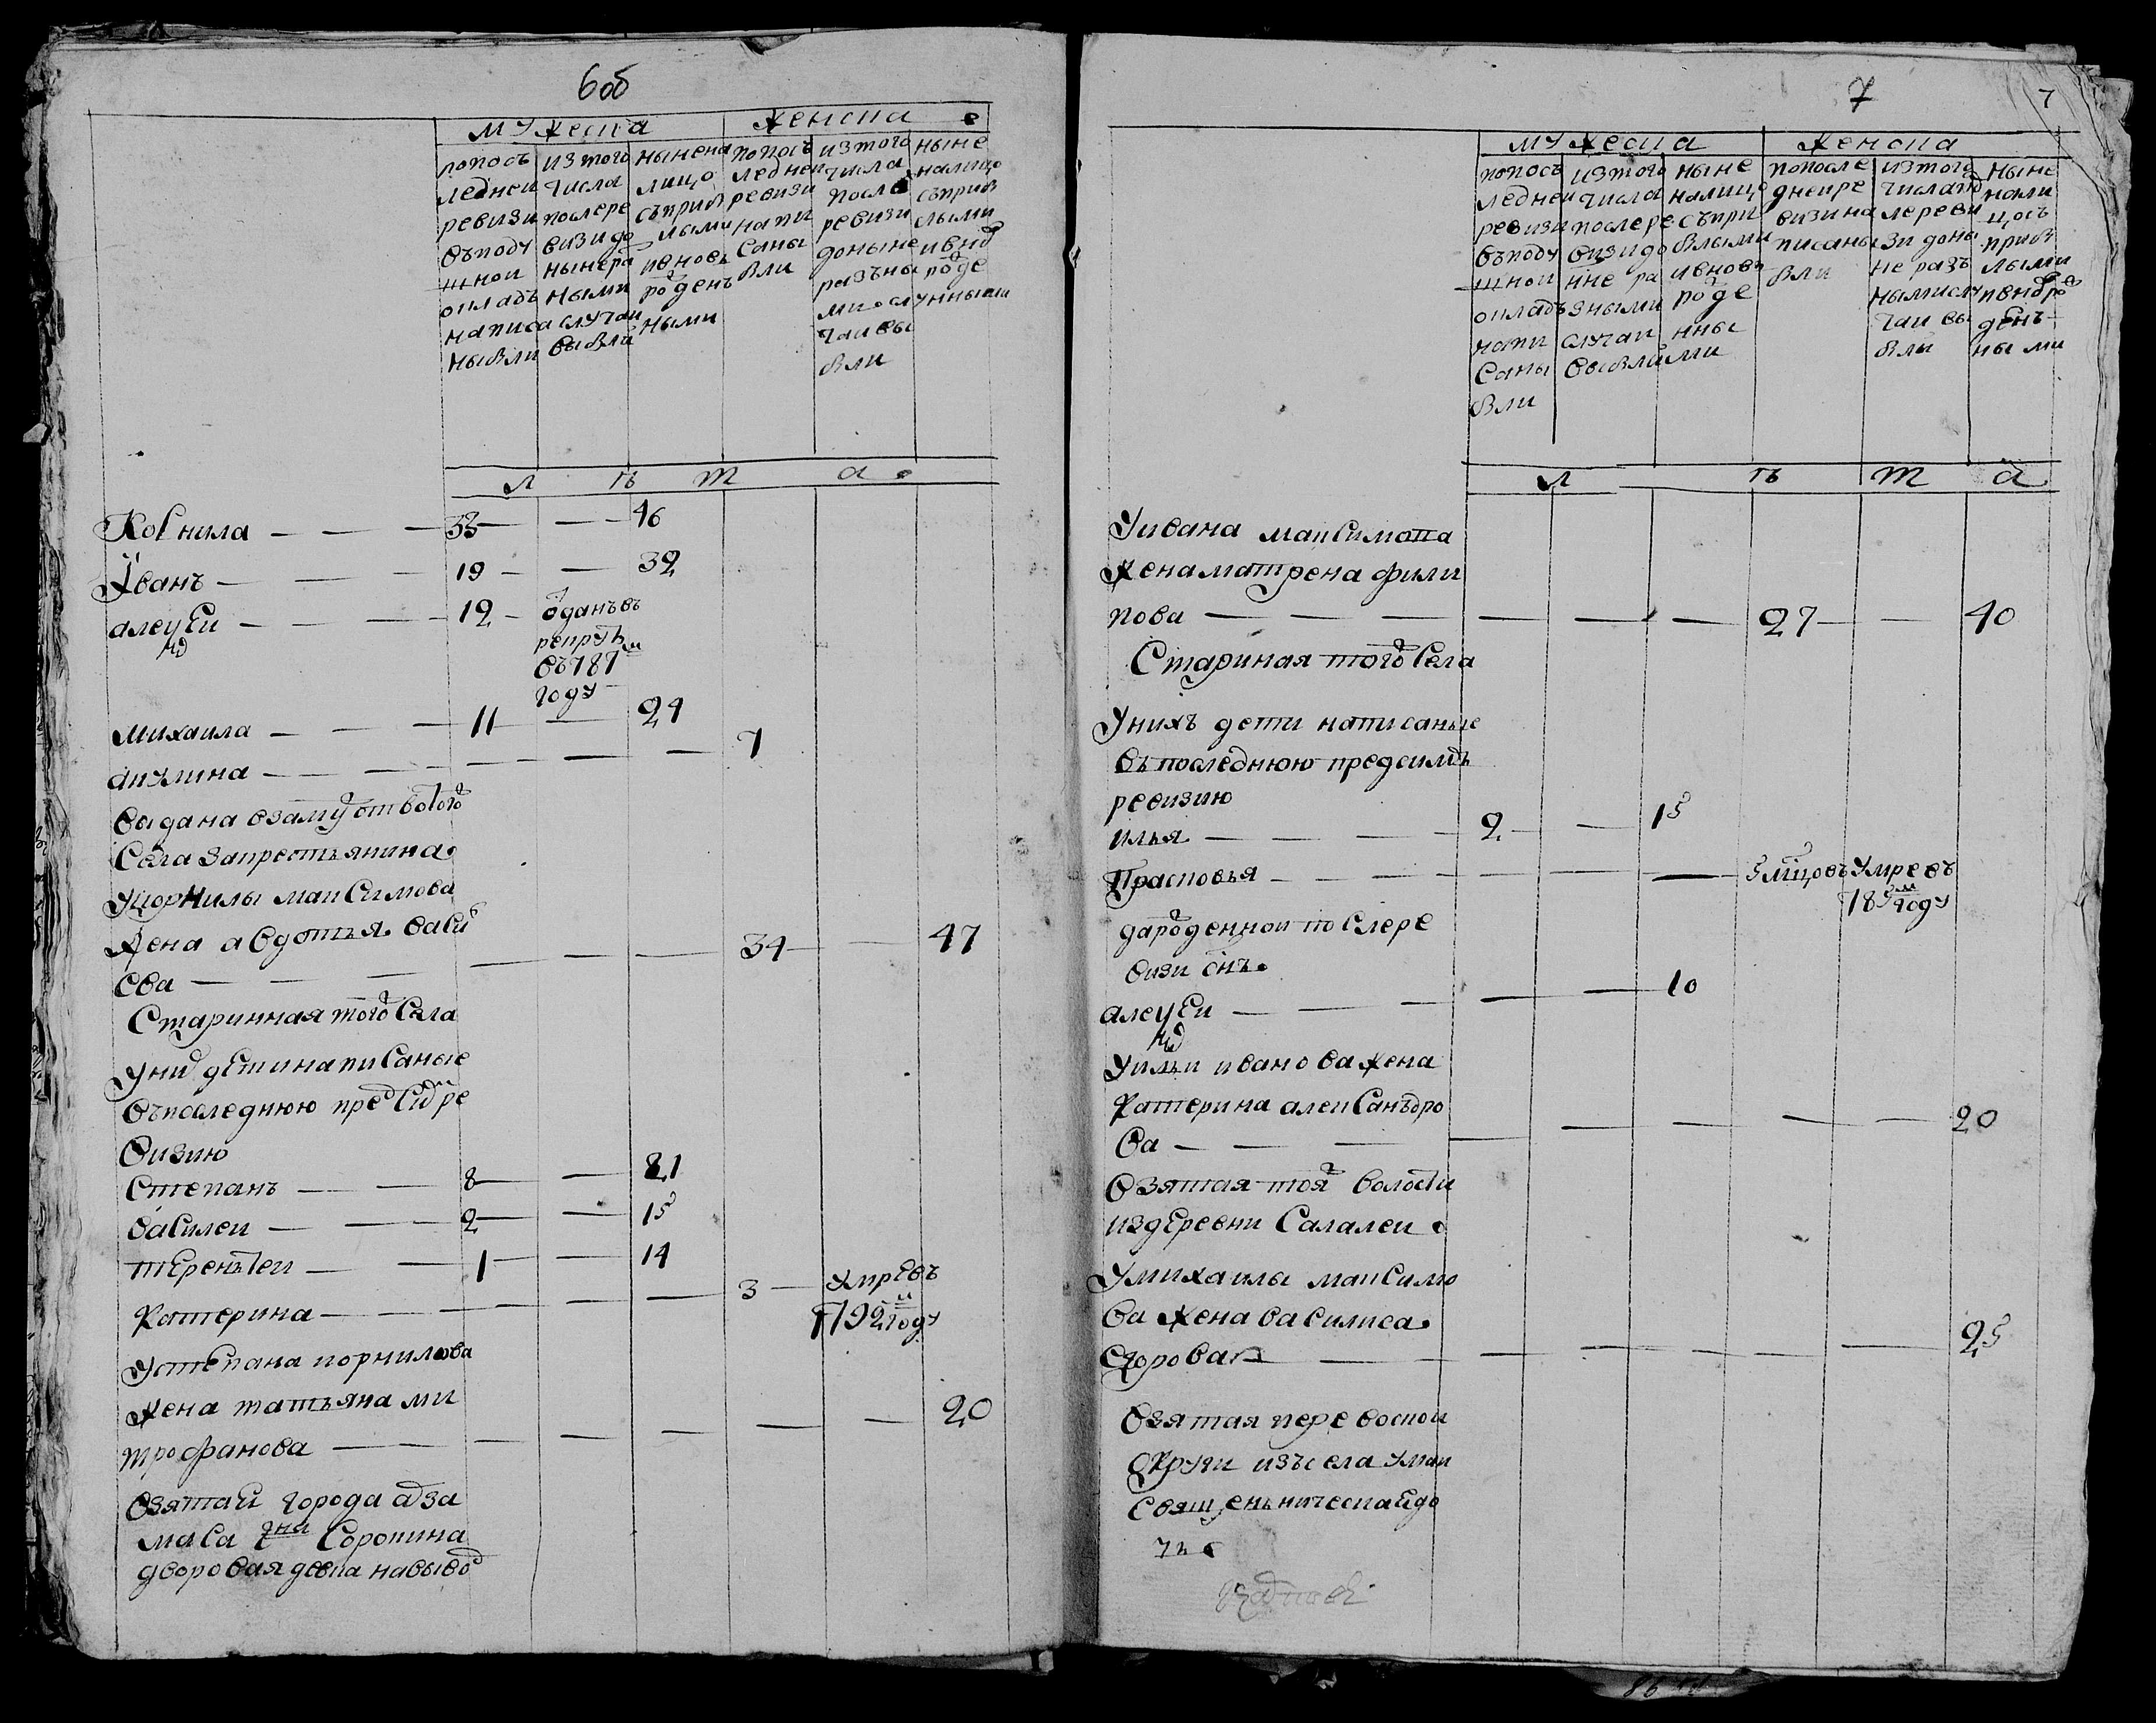 6об
мужеска
женска
попосъ
ледней
ревизи
въподу
шной
окладъ
написа
ны были
изтого
числа
послере
визи до
ныне ра
ными
случаи
выбли
нынена
лицо
съприб
лыми
ивновь
рожденъ
ными
попосъ
ледней
ревизи
напи
саны
бли
изтого
числа
после
ревизи
доныне
разъны
ми слу
чаи вы
бли
ныне
налицо
съприб
лыми
ивнов
рожде
нными
л ѣ т а
Корнила — — — 33 — — — 46
Иванъ — — — 19 — — 32
алецей — — — 12 — оданъ въ
рекрут
въ 787м
году
михаила — — — 11 — 24
акулина — — — — — — 7
выдана взамужство того
села запрестьянина
укорнилы максимова
жена авдотья васи
ева — — — — — — 34 — — 47
Старинная того села
уних дети написаные
въпоследнюю пред сим ре
визию
степанъ — — 8 — — 21
василеи — — — 2 — — 15
терентеи — — — 1 — — 14
катерина — — — — — — 3 — умре въ
1792м году
устепана корнилова
жена татьяна ми
трофанова — — — — — — — — 20
взятаи города арза
маса гни Сорокина
дворовая девка навывод
7
7
мужеска
женска
попосъ
ледней
ревизи
въподу
шной
окладъ
напи
саны
бли
изтого
числа
послере
визидо
нне ра
зными
случаи
выбли
ныне
налицо
съпри
былыми
ивновь
рожде
нны
ми
попосле
днеире
визина
писаны
бли
изтого
числапо
лереви
зи доны
не разъ
нымислу
чаи вы
блы
ныне
нали
цось
приб
лыми
ивнов рож
денъ
ными
л ѣ т а
Уивана максимова
жена матрена фили
пова — — — — — — 27 — — 40
Стариная того села
Уних дети написаные
въпоследнюю предсимъ
ревизию
илья — — — — 2 — — 15
Прасковья — — — — — — — 5 мцовъ умре въ
785м году
дарожденной послере
визи онъ
алецей — — — — — 10
Уильи иванова жена
катерина алексанъдро
ва — — — — — — — — 20
взятая тоя волости
издеревни Салалеи
Умихаилы максимо
ва жена василиса
Егорова — — — — — — — 25
взятая перевоской
округи изъ села
священьническая до
чь